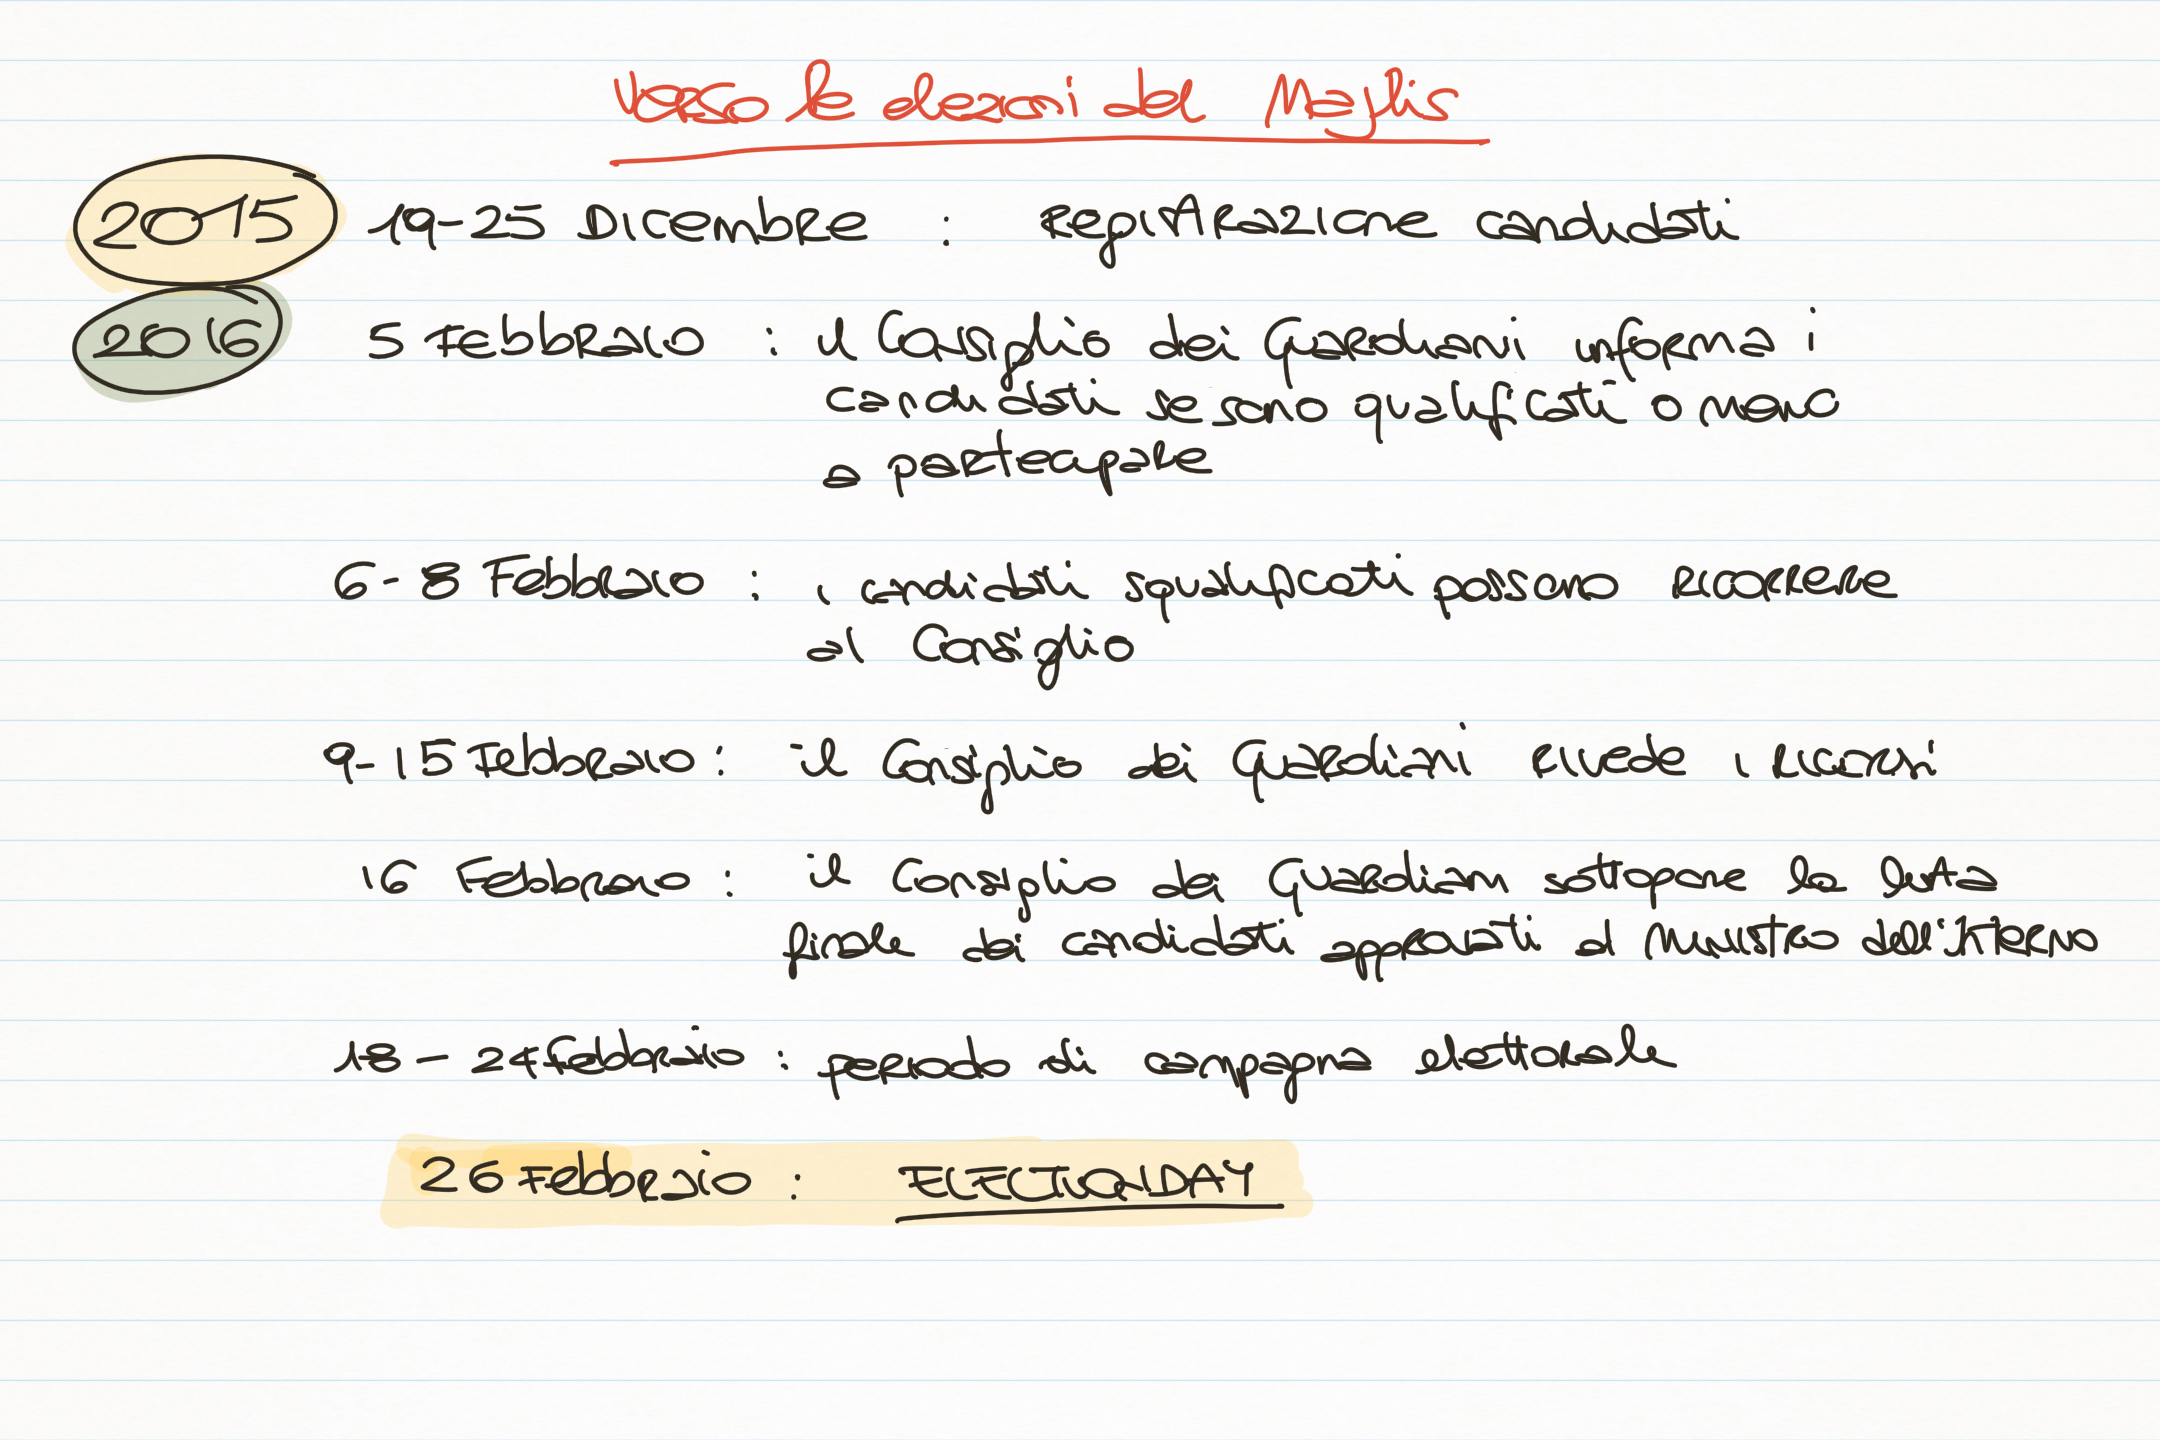 Verso le elezioni del Majlis
2015 19-25 Dicembre : Registrazione candidati
2016 5 Febbraio : il Consiglio dei Guardiani informa i
candidati se sono qualificati o meno
a partecipare
6-8 Febbraio : i candidati squalificati possono ricorrere
al Consiglio
9-15 Febbraio : il Consiglio dei Guardiani rivede i ricorsi
16 Febbraio : il Consiglio dei Guardiani sottopone la lista
finale dei candidati approvati al Ministro dell'Interno
18-24 Febbraio : periodo di campagna elettorale
26 Febbraio : ELECTION DAY